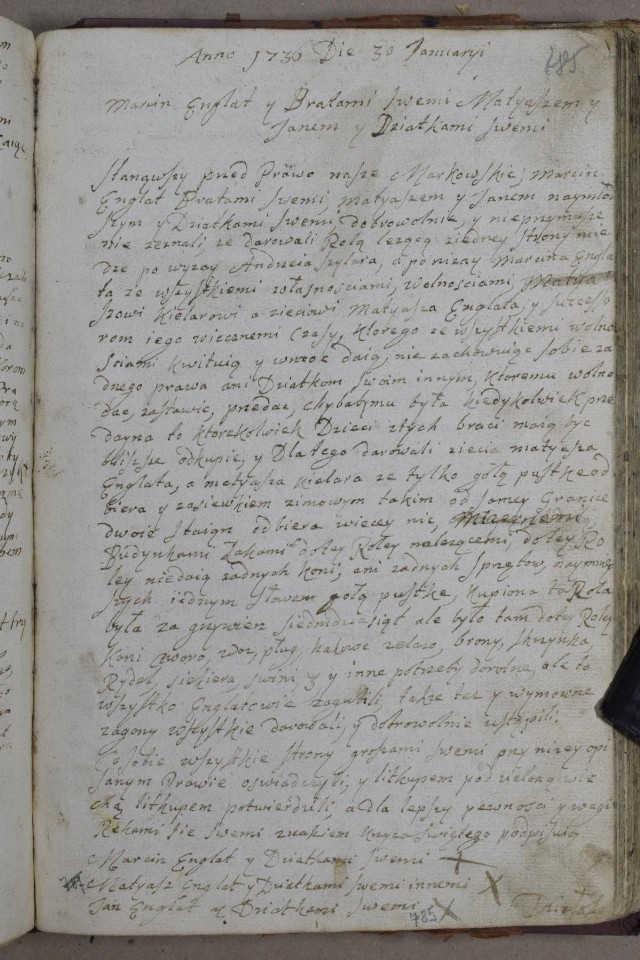 Anno 1736 Die 30 Januaryi
485
Marcin Englat y Bratami swemi Matyaszem y
Janem y Dziatkami swemi
Stanąwszy przed Prawo nasze Markowskie, Marcin
Englat Bratami swemi, Matyaszem y Janem naymło
szym y Dziatkami swemi dobrowolnie, y nieprzymusze
nie zeznali, ze darowali Rolą lezącą ziedney strony mie
dze po wyzay Andrzeia Szylara, a ponizay Marcina Engla
ta ze wszystkiemi własnosciami, wolnosciami, Matya
szowi Kielarowi a zieciowi Matyasza Englata, y sukcesso
rom iego wiecznemi czasy, ktorego ze wszystkiemi wolno
sciami kwituią y wmoc daią, nie zachowuiąc sobie za
dnego prawa ani Dziatkom swoim innym, ktoremu wolno
dac, zastawic, przedac, chybabymu była kiedykolwiek prze
dayna to ktorzkolwiek Dzieci ztych braci maią byc
blissze odkupic, y Dlatego darowali ziecia matyasza
Englata, a matyasza kielara ze tylko gołą pustke od
biera y zasiewkiem zimowym takim od samey Granice
dwoie staign odbiera wiecey nic,
Budynkami Łąkami dotey Roley nalezącemi, dotey Ro
ley niedaią zadnych koni, ani zadnych sprzętow, naymniey
szych iednym słowem gołą pustke, kupiona ta Rola
była za grzywien siedmdziesiąt ale było tam dotey Roley
koni cworo, woz, pług, kałowe zelazo, brony, skrzynka,
Rydel, siekiera, swini 3 y inne potrzeby dorolne, ale to
wszystko Englatowie zagubili, także tez y wymowne
zagony wszystkie darowali, y dobrowolnie ustąpili.
Co sobie wszystkie strony groszami swemi przy nizey opi
sanym Prawie oswiadczyli, y litkupem pod
litkupem potwierdzili, a dla lepszy pewnosci y wagi
Rekami sie swemi znakiem krzyza swiętego podpisuią
Marcin Englat y Dziatkami swemi +
Matyasz Englat y Dziatkami swemi innemi X
Jan Englat y Dziatkami swemi X
485